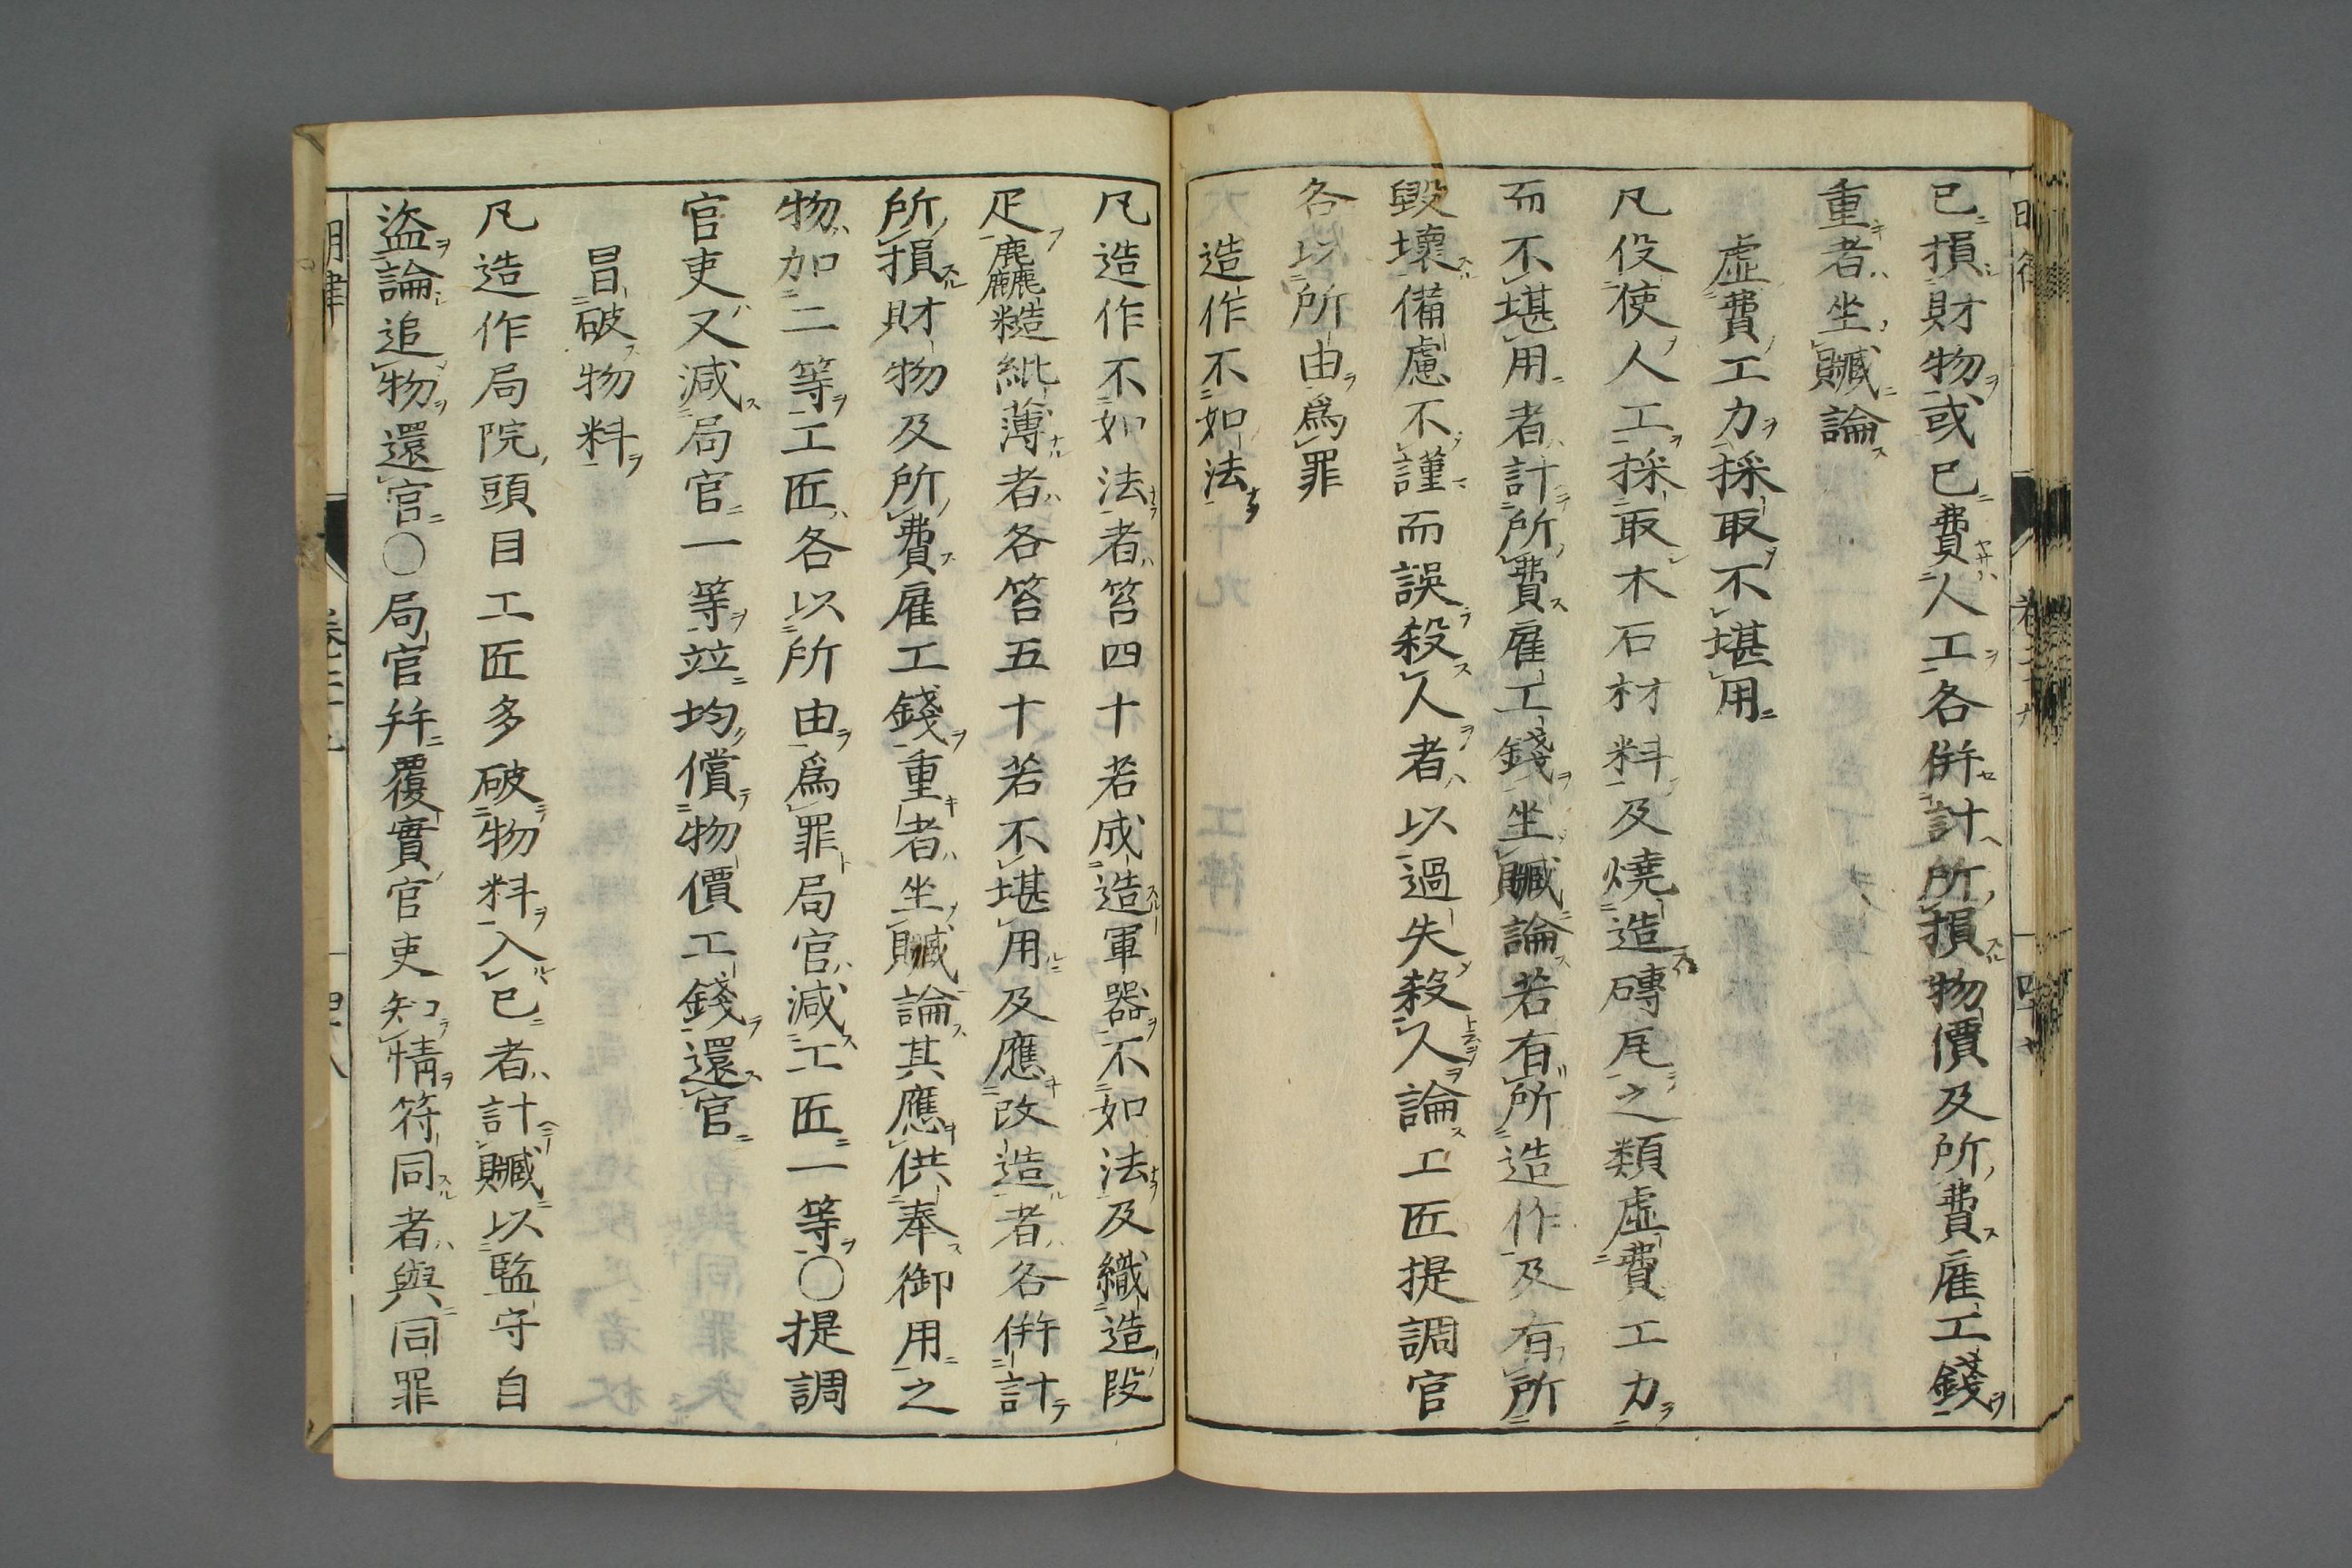 已損財物或已費人工各併計所損物價及所費雇工錢
重者坐贓論
虛費工力採取不堪用
凡役使人工採取木石材料及燒造磚瓦之類虛費工力
而不堪用者計所費雇工錢坐贓論若有所造作及有所
毀壞備慮不謹而誤殺人者以過失殺人論工匠提調官
各以所由爲罪
造作不如法
凡造作不如法者笞四十若成造軍器不如法及織造段
疋麄糙紕薄者各笞五十若不堪用及應改造者各併計
所損財物及所費雇工錢重者坐贓論其應供奉御用之
物加二等工匠各以所由爲罪局官減工匠一等〇提調
官吏又減局官一等竝均償物價工錢還官
冒破物料
凡造作局院頭目工匠多破物料入已者計贓以監守自
盜論追物還官〇局官幷覆實官吏知情符同者與同罪